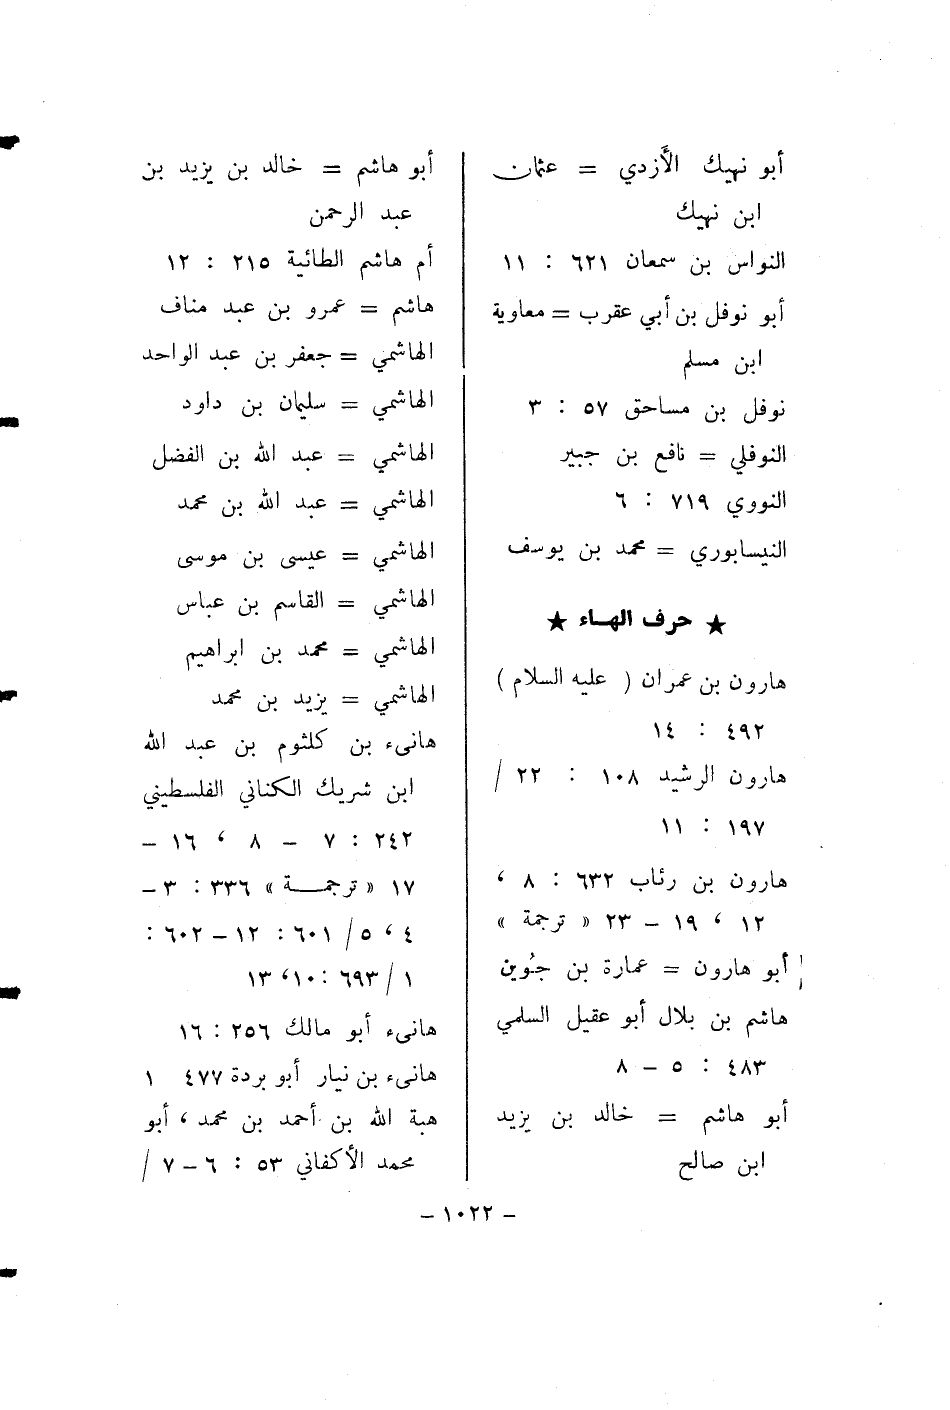 أبو نهيك الأزدي = عثمان
ابن نهيك
النواس بن سمعان ٦٢١ : ١١
أبو نوفل بن أبي عقرب = معاوية
ابن مسلم
نوفل بن مساحق ٥٧ : ٣
النوفلي = نافع بن جبير
النووي ٧١٩ : ٦
النيسابوري = محمد بن يوسف
★ حرف الهاء ★
هارون بن عمران ( عليه السلام )
٤٩٢ : ١٤
هارون الرشيد ١٠٨ : ٢٢ /
١٩٧ : ١١
هارون بن رئاب ٦٣٢ : ٨ ،
١٢ ، ١٩ – ٢٣ « ترجمة »
أبو هارون = عمارة بن جُوين
هاشم بن بلال أبو عقيل السلمي
٤٨٣ : ٥ – ٨
أبو هاشم = خالد بن يزيد
ابن صالح
أبو هاشم = خالد بن يزيد بن
عبد الرحمن
أم هاشم الطائية ٢١٥ : ١٢
هاشم = عمرو بن عبد مناف
الهاشمي = جعفر بن عبد الواحد
الهاشمي = سليمان بن داود
الهاشمي = عبد الله بن الفضل
الهاشمي = عبد الله بن محمد
الهاشمي = عيسى بن موسى
الهاشمي = القاسم بن عباس
الهاشمي = محمد بن ابراهيم
الهاشمي = يزيد بن محمد
هانىء بن كلثوم بن عبد الله
ابن شريك الكناني الفلسطيني
٢٤٢ : ٧ – ٨ ، ١٦ –
١٧ « ترجمـــة » ٣٣٦ : ٣ –
٤ ، ٥ / ٦٠١ : ١٢ – ٦٠٢ :
١ / ٦٩٣ : ١٠ ، ١٣
هانىء أبو مالك ٢٥٦ : ١٦
هانىء بن نيار أبو بردة ٤٧٧ ١
هبة الله بن أحمد بن محمد ، أبو
محمد الأكفاني ٥٣ : ٦ – ٧ /
– ١٠٢٢ –